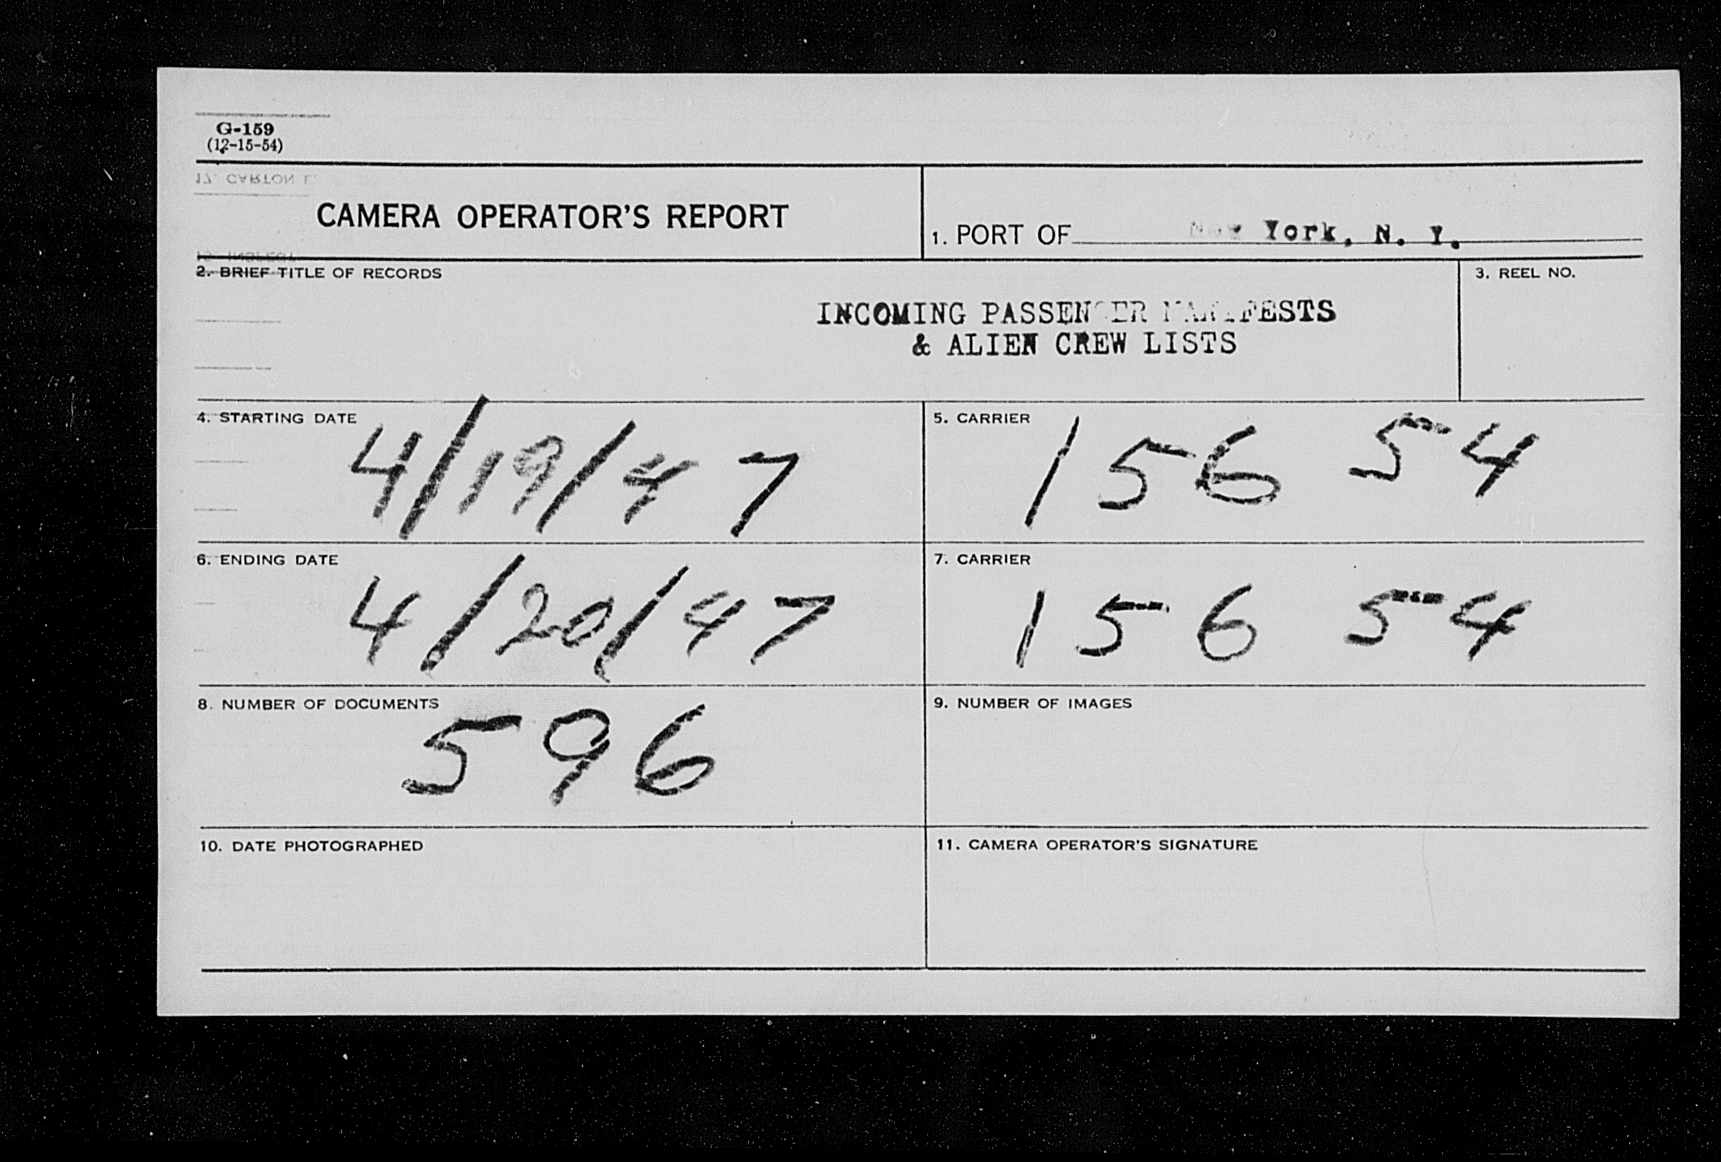 G-159
(12-15-54)
CAMERA OPERATOR'S REPORT
1. PORT OF New York, N. Y.
2. BRIEF TITLE OF RECORDS
INCOMING PASSENGER MANIFESTS
& ALIEN CREW LISTS
3. REEL NO.
4. STARTING DATE
4/19/47
5. CARRIER
156 54
6. ENDING DATE
4/20/47
7. CARRIER
156 54
8. NUMBER OF DOCUMENTS
596
9. NUMBER OF IMAGES
10. DATE PHOTOGRAPHED
11. CAMERA OPERATOR'S SIGNATURE